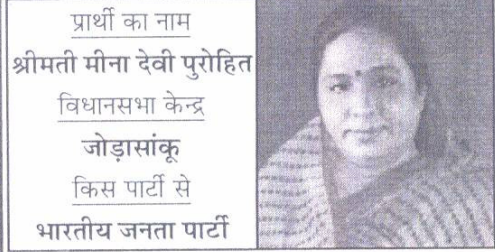 प्रार्थी का नाम
श्रीमती मीना देवी पुरोहित
विधानसभा केन्द्र
जोड़ासांकू
किस पार्टी से
भारतीय जनता पार्टी